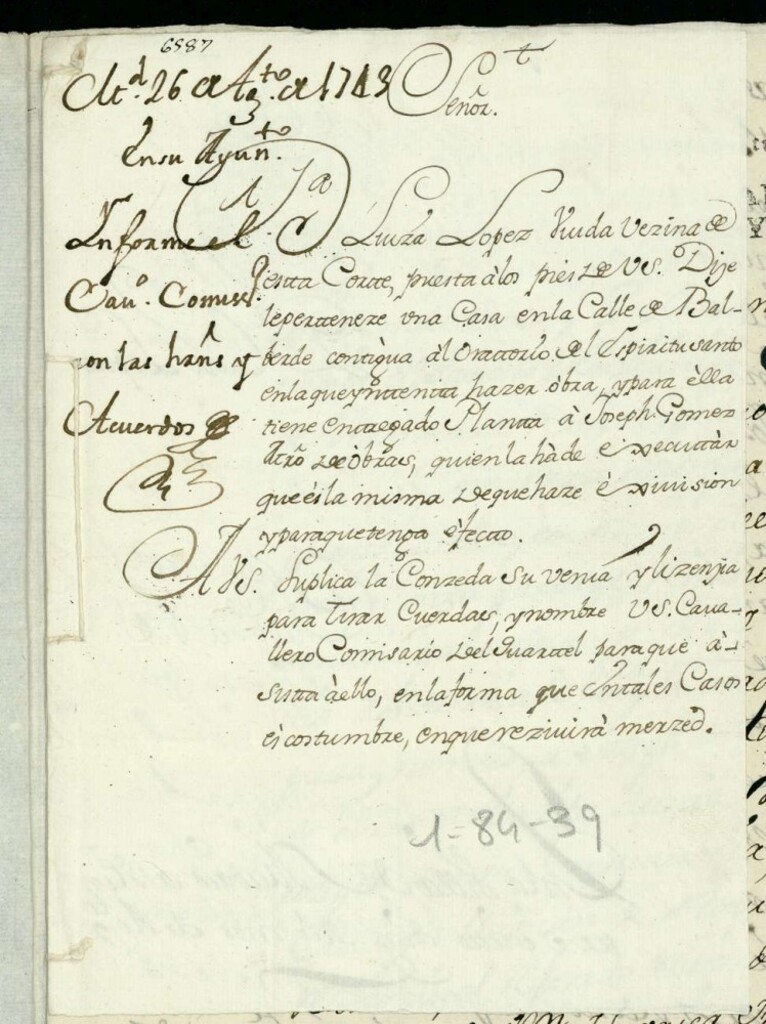 6587
Md. 26 de Agto. de 1743
En su Ayunto.
Informe el
Cauo. Comisso.
con las hazñs y
Acuerdos
Señor.
Luisa Lopez Viuda Vezina de
estta Cortte, puesta â los pies de VS. Dize
le pertteneze vna Casa en la Calle de Bal-
berde conttigua âl Orattorio del Espiritu santo
en la que ynttentta hazer ôbra, y para êlla
tiene enttregado Plantta â Joseph Gomez
Mro de ôbras, quien la hà de executtàr
que ès la misma de que haze êxivision
y para que tenga êfectto.
A VS. Suplica la Conzeda su venia y lizenzia
para tirar Cuerdas, y nombre VS. Cava-
llero Comisario del quarttel para que â-
sistta à ello, en la forma que en tales Casos
ès costumbre, en que rezivirà merzed.
1-84-39